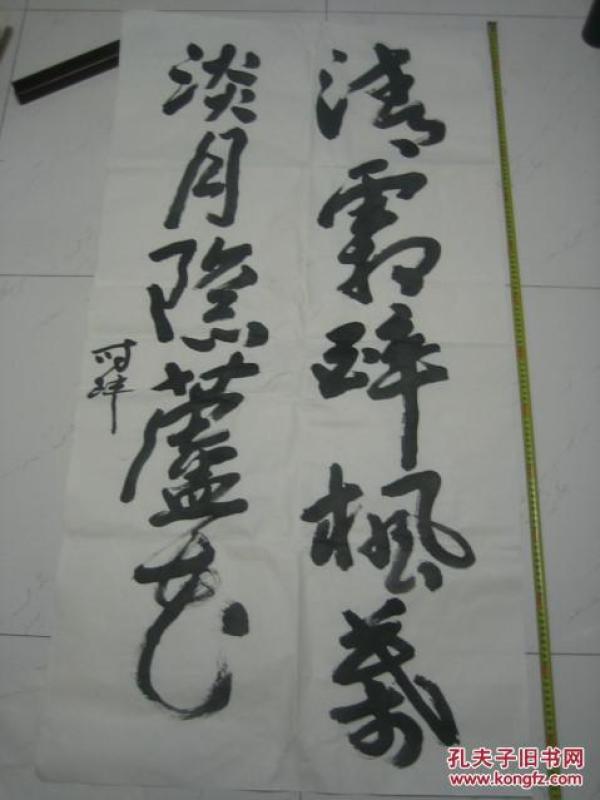 清霜醉楓葉
淡月隱蘆花
孔夫子旧书网
www.kongfz.com